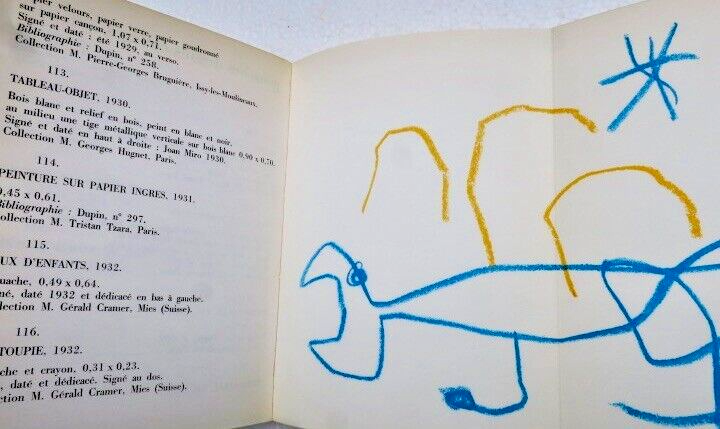 papier velours, papier verre, papier goudronné
sur papier cançon, 1,07 x 0,71.
Signé et daté : été 1929, au verso.
Bibliographie : Dupin, n° 258.
Collection M. Pierre-Georges Bruguière, Issy-les-Moulineaux.
113.
TABLEAU-OBJET, 1930.
Bois blanc et relief en bois, peint en blanc et noir,
au milieu une tige métallique verticale sur bois blanc 0,90 x 0,70.
Signé et daté en haut à droite : Joan Miro 1930.
Collection M. Georges Hugnet, Paris.
114.
PEINTURE SUR PAPIER INGRES, 1931.
0,45 x 0,61.
Bibliographie : Dupin, n° 297.
Collection M. Tristan Tzara, Paris.
115.
UX D'ENFANTS, 1932.
uache, 0,49 x 0,64.
né, daté 1932 et dédicacé en bas à gauche.
llection M. Gérald Cramer, Mies (Suisse).
116.
TOUPIE, 1932.
che et crayon, 0,31 x 0,23.
, daté et dédicacé. Signé au dos.
lection M. Gérald Cramer, Mies (Suisse).